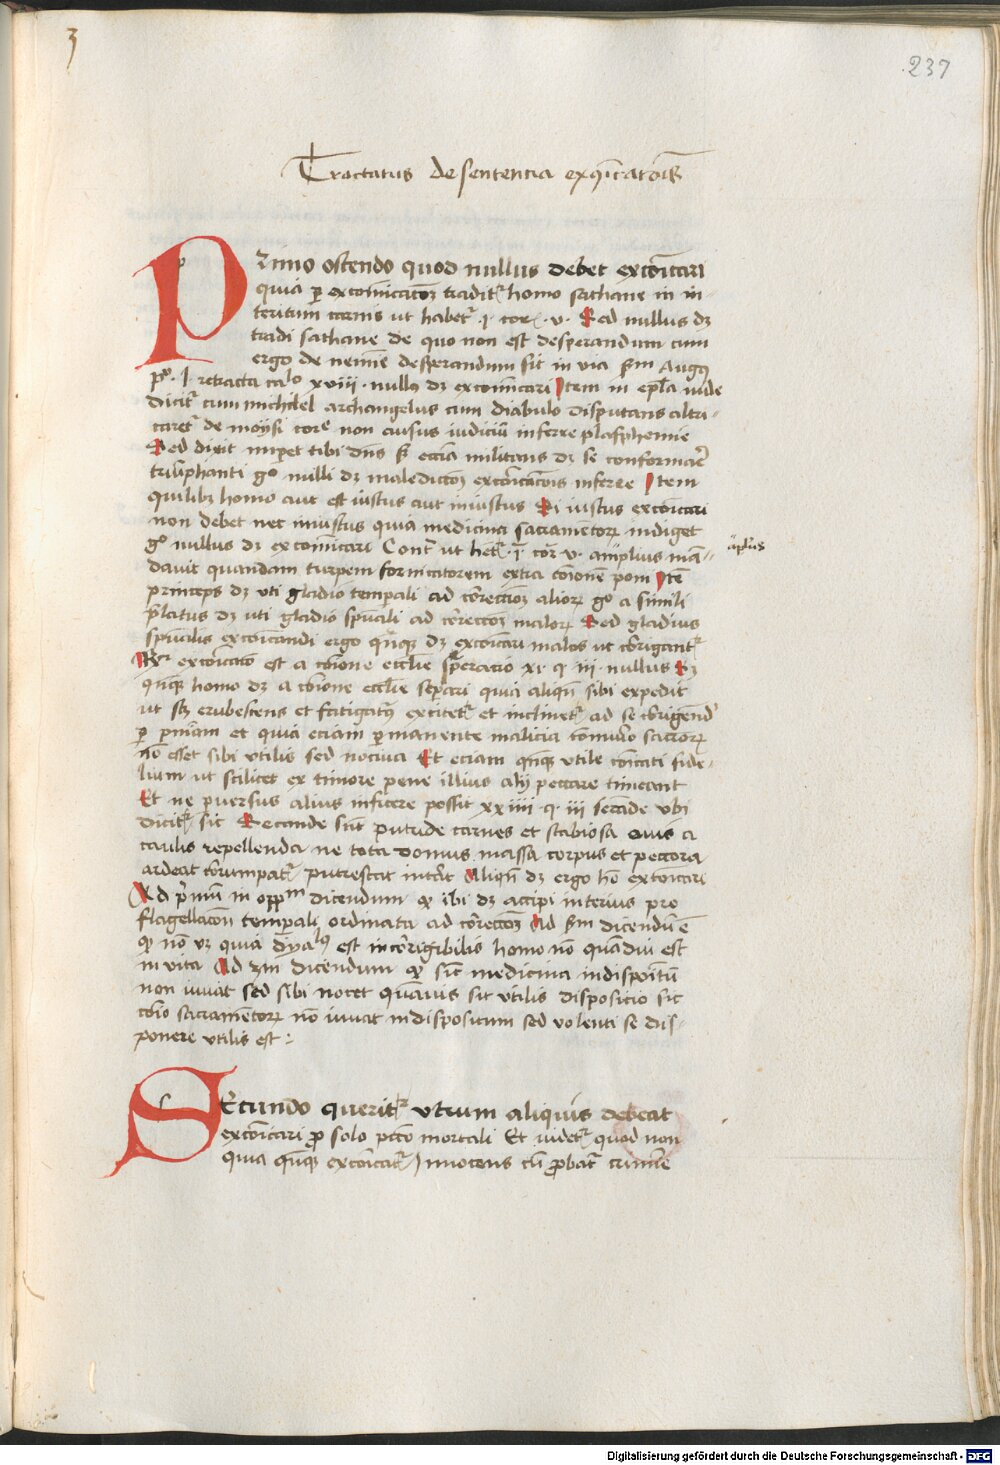 3
237
Tractatus de sentencia exco͞icat͞ois
PRimo ostendo quod nullus debet exco͞icari
quia p excom͞icac͞oꝫ tradit᷑ homo sathane in in-
teritum carnis ut habet᷑ .i. cor. v. Sed nullus dꝫ
tradi sathane de quo non est desperandum cum
ergo de nem͞ie desperandum sit in via s͞m Augꝰ
p͞o. i retracta ca͞lo xviiii. nullꝰ dꝫ exco͞icari Item in ep͞la iude
dicit᷑ cum michael archangelus cum diabulo disputans altri-
caret᷑ de moysi core non ausus iudiciu͞ inferre plasphemie
Sed dixit impet tibi d͞ns s͞ eccia militans dꝫ se conformare
triu͞phanti gᵒ nulli dꝫ maledictoꝫ exco͞icac͞ois inferre Item
quilibꝫ homo aut est iustus aut iniustus Si iustus exco͞icari
non debet nec iniustus quia medicina sacramentoꝝ indiget
gᵒ nullus dꝫ excom͞icari Cont᷑ ut het᷑ .i. cor v. amplius man-
apl͞us
davit quandam turpem fornicatorem extra co͞ionem poni Ite͞
princeps dꝫ uti gladio temporali ad correcc͞oꝫ alioꝝ gᵒ a simili
p͞latus dꝫ uti gladio sp͞uali ad correcc͞oꝫ maloꝝ Sed gladius
sp͞ualis exco͞icandi ergo q͞nqꝫ dꝫ exco͞icari malos ut corrigant᷑
exco͞icato est a co͞ione ecclie seperacio xi. q iii. nullus Sꝫ
q͞nqꝫ homo dꝫ a co͞ione ecclie seperari quia aliqn͞ sibi expedit
ut sꝫ erubescens et fatigatꝰ excitet᷑ et inclinet᷑ ad se corrigend͞
p p͞niam et quia eciam permanente malicia co͞munio sacroꝝ
no͞ esset sibi utilis sed nociua Et eciam q͞nqꝫ utile co͞itati fide-
lium ut scilicet ex timore pene illius alij peccare timeant
Et ne peruersus alius inficere possit xxiiii. q. iii secade ubi
dicit᷑ sic Secande sunt putride carnes et scabiosa ouis a
caulis repellenda ne tota domus massa corpus et peccora
ardeat corrumpat᷑ putrescat intereat Aliqn͞ dꝫ ergo ho͞ exco͞icari
Ad p͞rimu͞ in oppᵐ dicendum qꝫ ibi dꝫ accipi interius pro
flagellacon͞ temporali ordinata ad correcc͞oꝫ Ad s͞m dicendu͞ e͞
qꝫ no͞ uꝫ quia dyaˡꝰ est incorrigibilis homo no͞ quamdiu est
in vita Ad 3m dicendum qꝫ sic͞ medicina indispo͞itu͞
non iuuat sed sibi nocet quamuis sit utilis disposicio sic
co͞io sacramentoꝝ no͞ iuuat indispositum sed volenti se dis-
ponere utilis est :
SEcundo querit᷑ utrum aliquis debeat
exco͞icari p͞ solo pcc͞o mortali Et videt᷑ quod non
quia q͞nqꝫ exco͞icat᷑ innocens cu͞ probat᷑ crimine
Digitalisierung gefördert durch die Deutsche Forschungsgemeinschaft - DFG